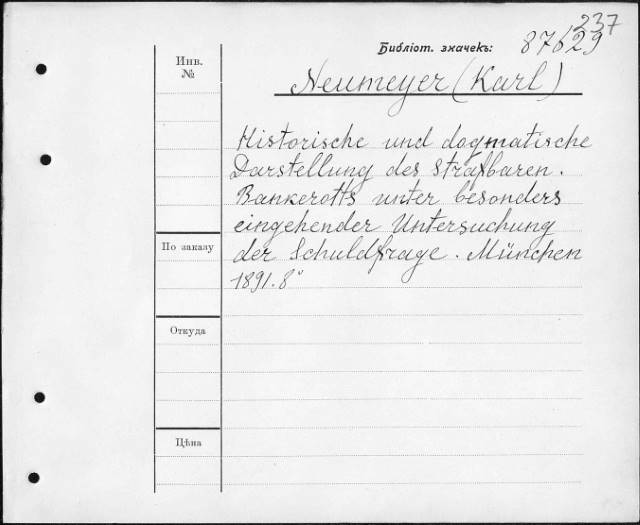 237
Библіот. значекъ: 87629
Инв.
№
Neumeyer (Karl)
Historische und dogmatische
Darstellung des strafbaren.
Bankerotts unter besonders
eingehender Untersuchung
der Schuldfrage. München
1891. 8°
По заказу
Откуда
Цѣна